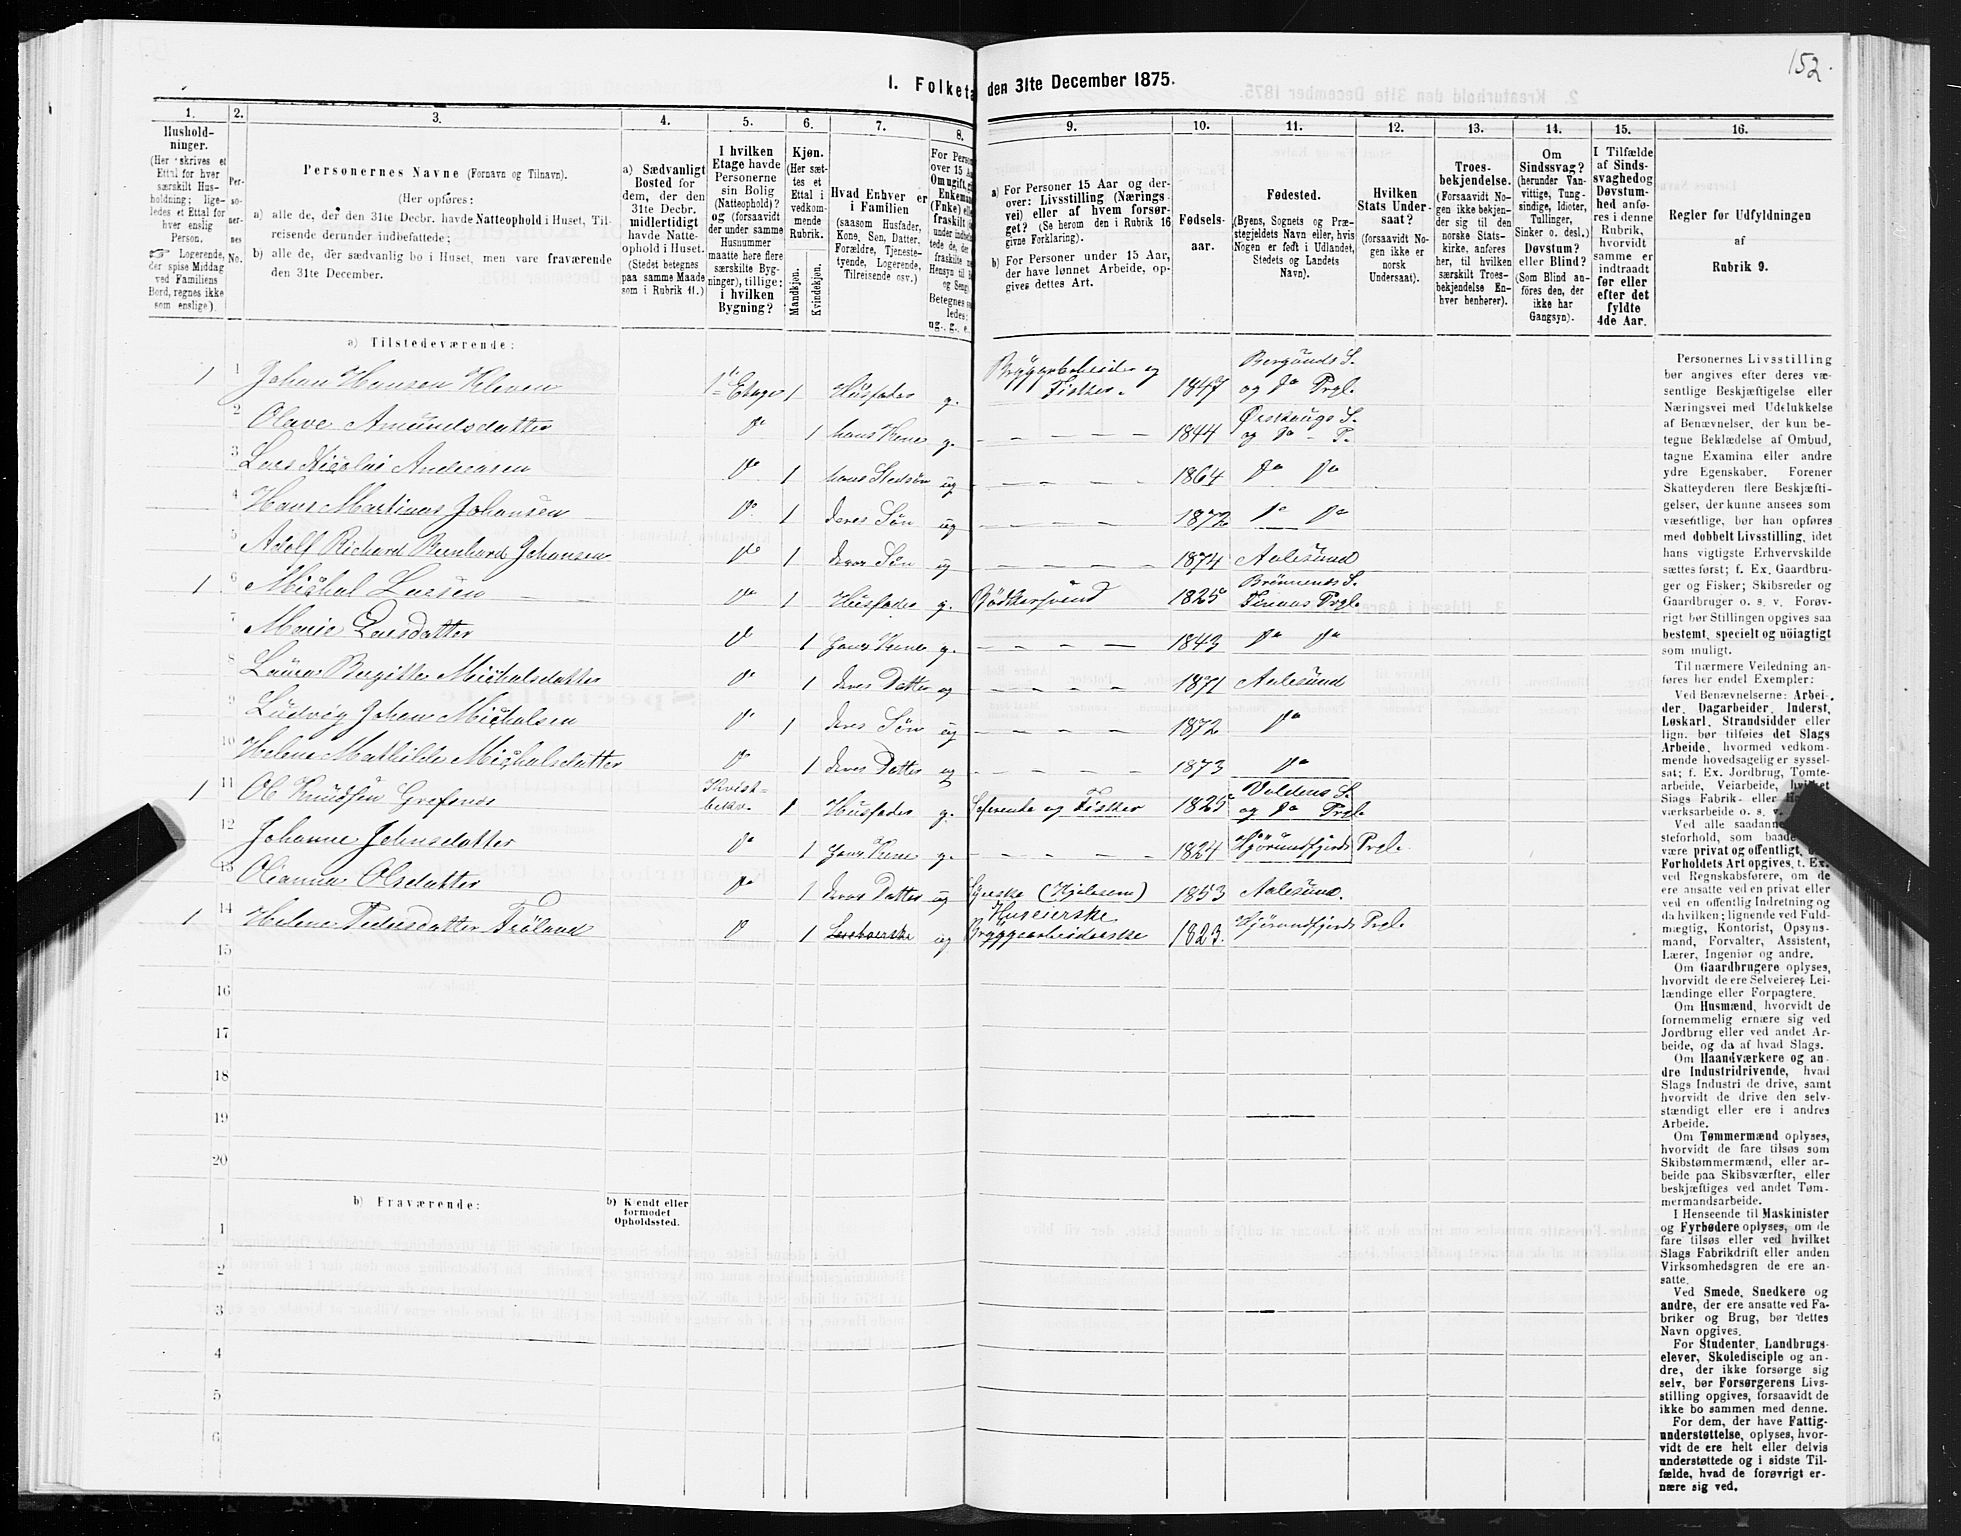 152.
1. Folketæ den 31te December 1875.
1. 2. 3. 4. 5. 6. 7. 8. 9. 10. 11. 12. 13. 14. 15. 16.
Hushold-
ninger.
(Her skrives et
Ettal for hver
særskilt Hus-
holdning; lige-
ledes et Ettal for
hver enslig
Person.
☞ Logerende,
der spise Middag
ved Familiens
Bord, regnes ikke
som enslige).
Per-
so-
ner-
nes
No.
Personernes Navne (Fornavn og Tilnavn).
(Her opføres:
a) alle de, der den 31te Decbr. havde Natteophold i Huset, Til-
reisende derunder indbefattede;
b) alle de, der sædvanlig bo i Huset, men vare fraværende
den 31te December.
a) Sædvanligt
Bosted for
dem, der den
31te Decbr.
midlertidigt
havde Natte-
ophold i Huset.
(Stedet betegnes
paa samme Maade
som i Rubrik 11.)
I hvilken
Etage havde
Personerne
sin Bolig
(Natteophold)?
og (forsaavidt
der under samme
Husnummer
maatte høre flere
særskilte Byg-
ninger), tillige:
i hvilken
Bygning?
Kjøn.
(Her sæt-
tes et
Ettal i
vedkom-
mende
Rubrik.
Mandkjøn.
Kvindekjøn.
Hvad Enhver er
i Familien
(saasom Husfader,
Kone, Søn, Datter,
Forældre, Tjeneste-
tyende, Logerende,
Tilreisende osv.)
For Person
over 15 Aa
Om ugift, gi
Enkemand
(Enke) elle
fraskilt
ug., g., e.
a) For Personer 15 Aar og der-
over: Livsstilling (Nærings-
vei) eller af hvem forsør-
get? (Se herom den i Rubrik 16
givne Forklaring).
b) For Personer under 15 Aar,
der have lønnet Arbeide, op-
gives dettes Art.
Fødsels-
aar.
Fødested.
(Byens, Sognets og Præ-
stegjeldets Navn eller, hvis
Nogen er født i Udlandet,
Stedets og Landets
Navn).
Hvilken
Stats Under-
saat?
(forsaavidt No-
gen ikke er
norsk
Undersaat).
Troes-
bekjendelse.
(Forsaavidt No-
gen ikke bekjen-
der sig til den
norske Stats-
kirke, anføres
her, til hvilken
særskilt Troes-
bekjendelse En-
hver henhører).
Om
Sindssvag?
(herunder Van-
vittige, Tung-
sindige, Idioter,
Tullinger,
Sinker o. desl.)
Døvstum?
eller Blind?
(Som Blind an-
føres den, der
ikke har
Gangsyn).
I Tilfælde
af Sinds-
svaghedog
Døvstum-
hed anfø-
res i denne
Rubrik,
hvorvidt
samme er
indtraadt
før eller
efter det
fyldte
4de Aar.
Regler for Udfyldningen
af
Rubrik 9.
a) Tilstedeværende:
1 1 Johan Hansen Kleven 1ste Etage 1 Husfader g. Bryggearbeider og Fisker. 1847 Borgunds S. og do Prgl.
2 Olave Amundsdatter do 1 hans Kone g. – – – – 1844 Ørskougs S. og do – P.
3 Lars Nicolai Andreasen do 1 hans Stedsøn ug – – – – 1864 do do
4 Hans Martinus Johansen do 1 deres Søn ug – – – – 1872 do do
5 Adolf Richard Bernhard Johansen do 1 deres Søn ug – – – – 1874 Aalesund
1 6 Michal Larsen do 1 Husfader g. Bødkersvend 1825 Brønnens S. Prgl.
7 Marie Larsdatter do 1 Hans Kone g. – – – – 1843 do do
8 Laura Birgitte Michalsdatter do 1 deres Datter ug – – – – 1871 Aalesund
9 Ludvig Johan Michalsen do 1 deres Søn ug – – – – 1872 do
10 Helene Mathilde Michalsdatter do 1 deres Datter ug – – – – 1873 do
1 11 Ole Knudsen Grefsnæs Kvist-bekv. 1 Husfader g. Leierende og Fisker 1825 Voldens S. og do Prgl.
12 Johanne Johnsdatter do 1 Hans Kone g. – – – – 1824 Hjørundfjords Prgl.
13 Olianna Olsdatter do 1 deres Datter ug (Hjelesem) 1853 Aalesund.
1 14 Helene Pedersdatter Frøland do 1 ug Huseierske Bryggearbeiderske 1823. Hjørundfjords Prgl.
15
16
17
18
19
20
b) Fraværende:
b) Kjendt eller
formodet
Opholdssted.
1
2
3
4
5
6
Personernes Livsstilling
bør angives efter deres væ-
sentlige Beskjæftigelse eller
Næringsvei med Udelukkelse
af Benævnelser, der kun be-
tegne Beklædelse af Ombud,
tagne Examina eller andre
ydre Egenskaber. Forener
Skatteyderen flere Beskjæfti-
gelser, der kunne ansees som
væsentlige, bør han opføres
med dobbelt Livsstilling, idet
hans vigtigste Erhvervskilde
sættes først; f. Ex. Gaardbru-
ger og Fisker; Skibsreder og
Gaardbruger o. s. v. Forøv-
rigt bør Stillingen opgives saa
bestemt, specielt og nøiagtigt
som muligt.
Til nærmere Veiledning an-
føres her endel Exempler:
Ved Benævnelserne: Arbei-
der, Dagarbeider, Inderst,
Løskarl, Strandsidder eller
lign. bør tilføies det Slags
Arbeide, hvormed vedkom-
mende hovedsagelig er syssel-
sat; f. Ex. Jordbrug, Tomte-
arbeide, Veiarbeide, hvilket
Slags Fabrik- eller H
værksarbeide o. s. v.
Ved alle saadanne
steforhold, som baade
være privat og offentligt,
Forholdets Art opgives, t. Ex.
ved Regnskabsførere, om de
ere ansatte ved en privat eller
ved en offentlig Indretning og
da hvilken; lignende ved Fuld-
mægtig, Kontorist, Opsyns-
mand, Forvalter, Assistent,
Lærer, Ingeniør og andre.
Om Gaardbrugere oplyses,
hvorvidt de ere Selveiere, Lei-
lændinge eller Forpagtere.
Om Husmænd, hvorvidt de
fornemmelig ernære sig ved
Jordbrug eller ved andet Ar-
beide, og da af hvad Slags.
Om Haandværkere og an-
dre Industridrivende, hvad
Slags Industri de drive, samt
hvorvidt de drive den selv-
stændigt eller ere i andres
Arbeide.
Om Tømmermænd oplyses,
hvorvidt de fare tilsøs som
Skibstømmermænd, eller ar-
beide paa Skibsværfter, eller
beskjæftiges ved andet Tøm-
mermandsarbeide.
I Henseende til Maskinister
og Fyrbødere oplyses, om de
fare tilsøs eller ved hvilket
Slags Fabrikdrift eller anden
Virksomhedsgren de ere an-
satte.
Ved Smede, Snedkere og
andre, der ere ansatte ved Fa-
briker og Brug, bør dettes
Navn opgives.
For Studenter, Landbrugs-
elever, Skoledisciple og an-
dre, der ikke forsørge sig
selv, bør Forsørgerens Livs-
stilling opgives, forsaavidt de
ikke bo sammen med denne.
For dem, der have Fattig-
understøttelse, oplyses, hvor-
vidt de ere helt eller delvis
understøttede og i sidste Til-
fælde, hvad de forøvrigt er-
nære sig ved.